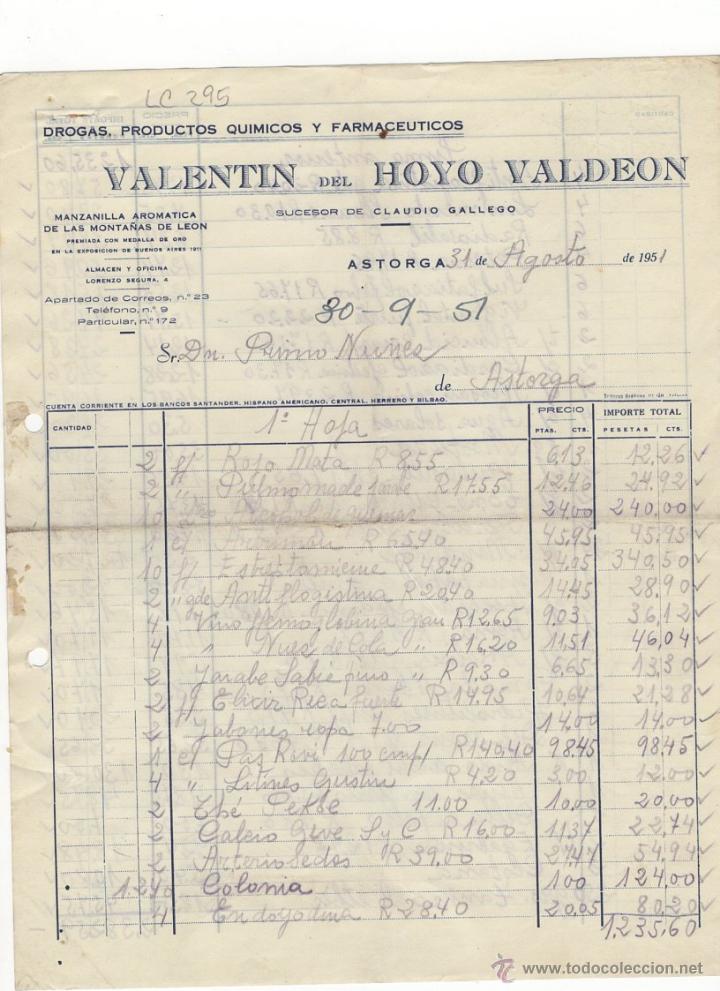 LC 295
DROGAS, PRODUCTOS QUIMICOS Y FARMACEUTICOS
VALENTIN DEL HOYO VALDEON
MANZANILLA AROMATICA
DE LAS MONTAÑAS DE LEON
PREMIADA CON MEDALLA DE ORO
EN LA EXPOSICION DE BUENOS AIRES 1911
SUCESOR DE CLAUDIO GALLEGO
ALMACEN Y OFICINA
LORENZO SEGURA, 4
ASTORGA 31 de Agosto de 1951
Apartado de Correos, n.º 23
Teléfono, n.º 9
Particular, n.º 172
30-9-51
Sr. Dn. Primo Nuñez
de Astorga
CUENTA CORRIENTE EN LOS BANCOS SANTANDER, HISPANO AMERICANO, CENTRAL, HERRERO Y BILBAO.
CANTIDAD PRECIO IMPORTE TOTAL
PTAS. CTS. PESETAS CTS.
1ª Hoja
2 f/ Rojo Mata R 8,55 6,13 12,26
2 " R 17.55 12,46 24,92
10 24,00 240,00
1 c/ R 65,40 45,95 45,95
10 f/ R 48,40 34,05 340,50
2 " gde Antiflogistina R 20,40 14,45 28,90
4 Vino Hemoglobina gran R 12,65 9,03 36,12
4 " Nuez de Cola " R 16,20 11,51 46,04
2 Jarabe Sabie pino " R 9,30 6,65 13,30
2 f/ Elixir Rica fuerte R 14,95 10,64 21,28
2 Jabones ropa 7.00 14,00 14,00
1 c/ Pas Ravi 100 cmp/ R 140,40 98,45 98,45
4 " Litines Gustin R 4,20 3,00 12,00
2 Thé 11.00 10,00 20,00
2 R 16,00 11,37 22,74
2 Arterio Sedos R 39,00 27,47 54,94
1.240 Colonia 100 124,00
4 Endoyodina R 28,40 20,05 80,20
1.235,60
www.todocoleccion.net